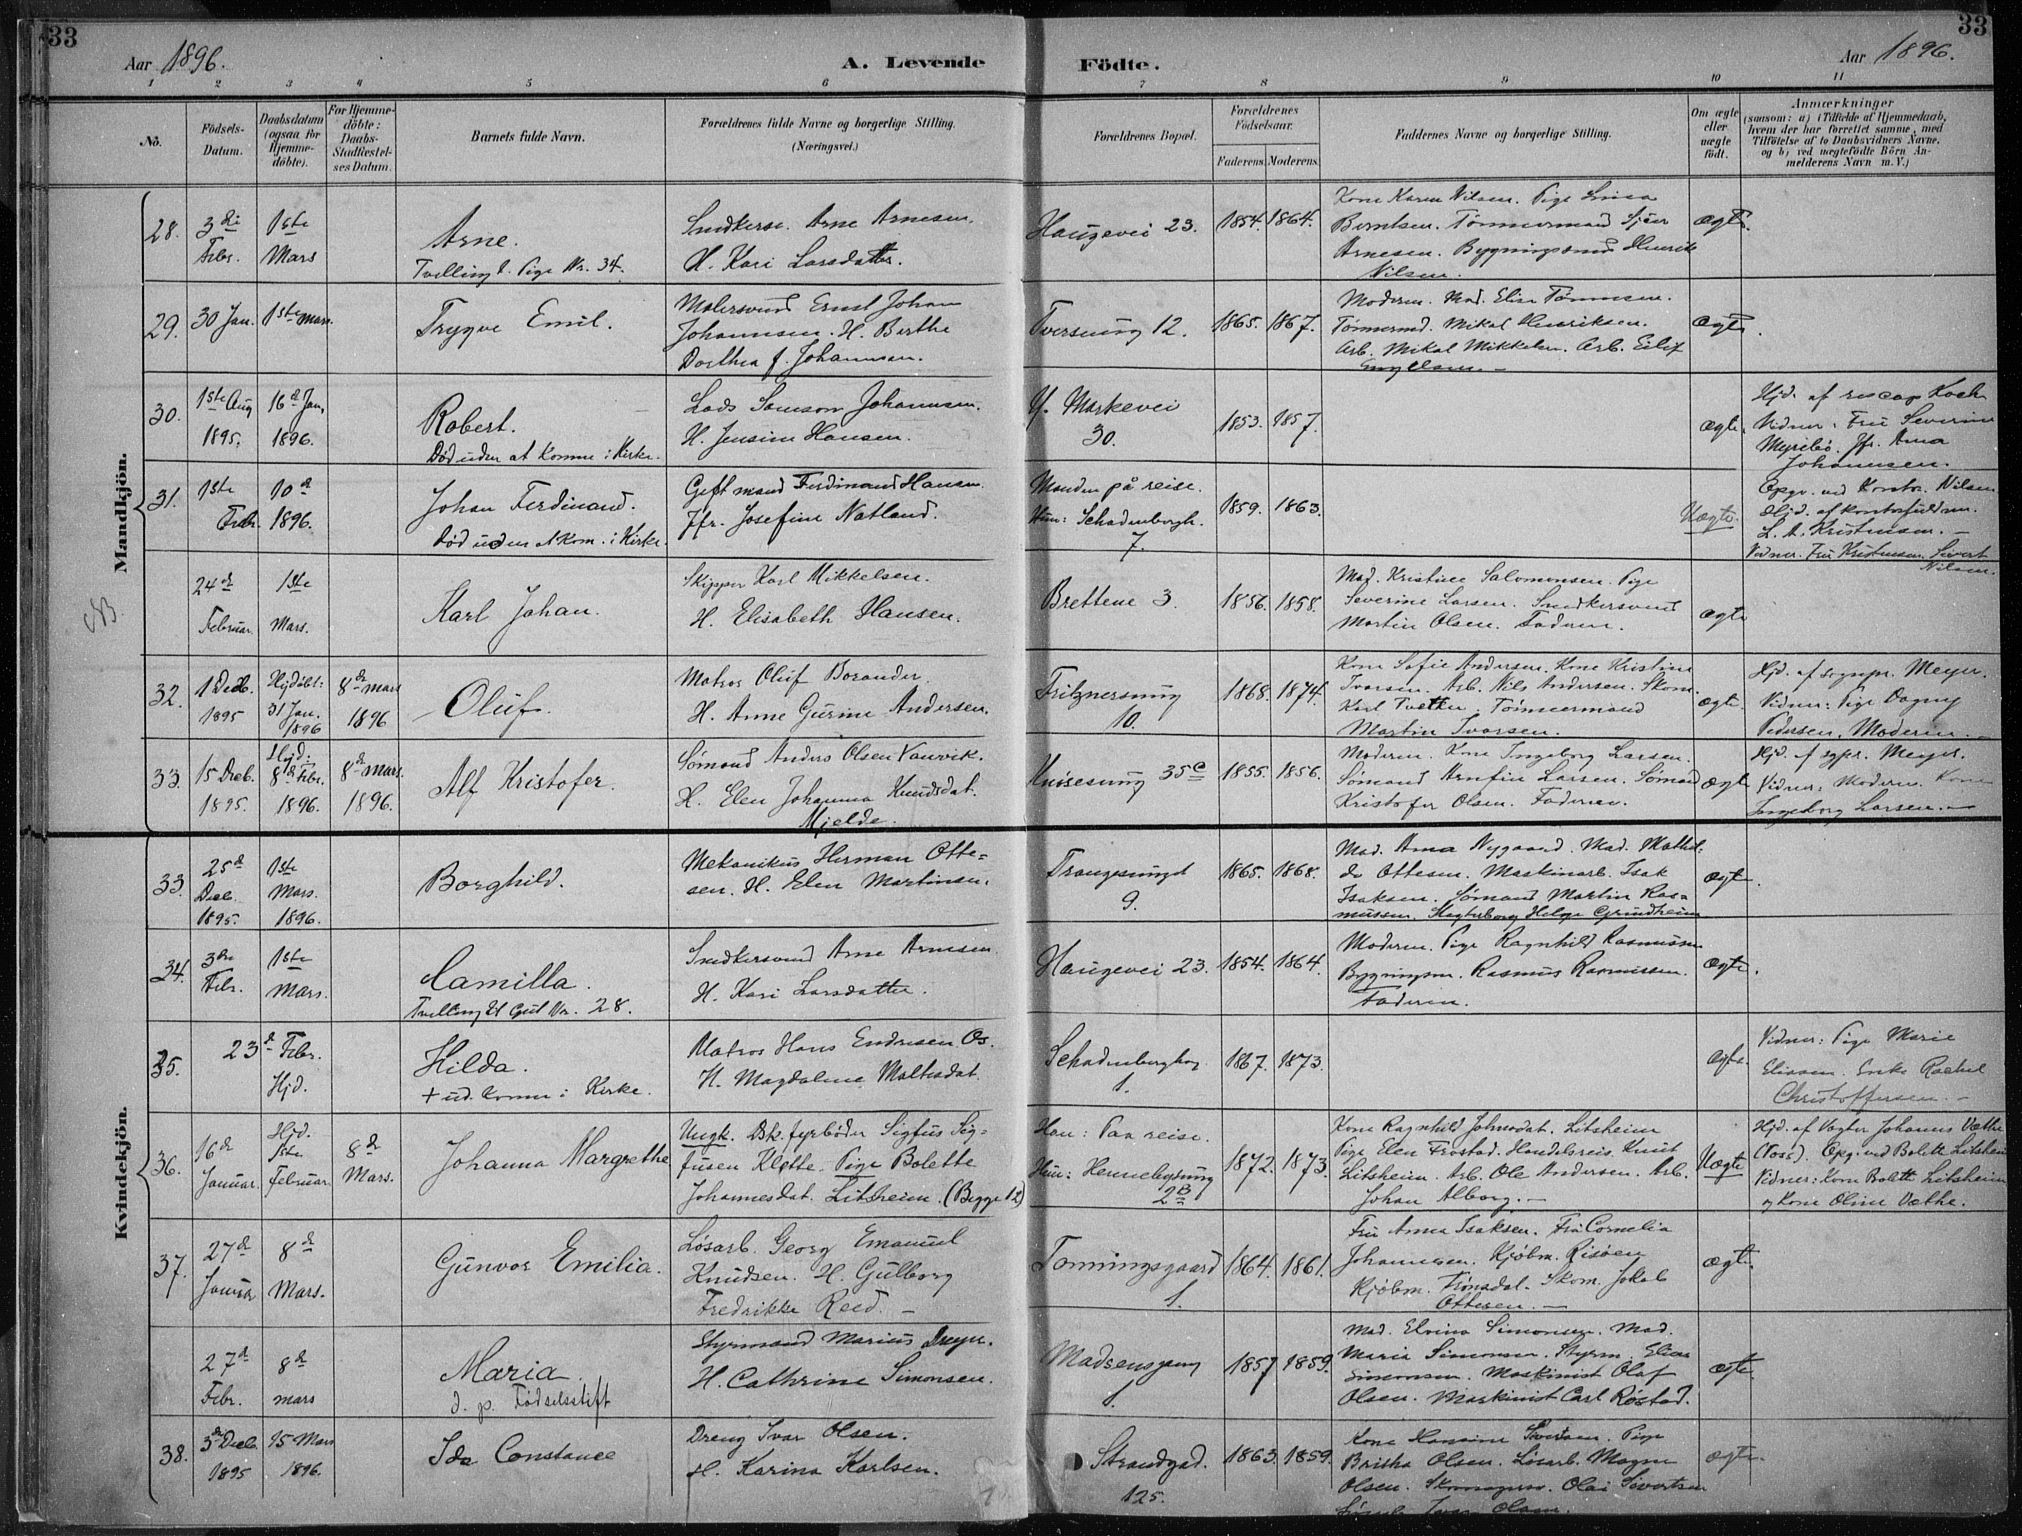 33
33
Aar 1896.
A. Levende
Födte.
Aar 1896.
1 2 3 4 5 6 7 8 9 10 11
No.
Födsels-
Datum.
Daabsdatum
(ogsaa for
Hjemme-
döbte).
For Hjemme-
döbte:
Daabs-
Stadfæstel-
ses Datum.
Barnets fulde Navn.
Forældrenes fulde Navne og borgerlige Stilling.
(Næringsvei.)
Forældrenes Bopæl.
Forældrenes
Födselsaar.
Faderens. Moderens.
Faddernes Navne og borgerlige Stilling.
Om ægte
eller
uægte
födt.
Anmærkninger
(saasom: a) i Tilfælde af Hjemmedaab,
hvem der har forrettet samme, med
Tilföielse af to Daabsvidners Navne,
og b) ved uægtefödte Börn An-
melderens Navn m. V.)
Mandkjön.
28.
3die
Febr.
1ste
Mars
Arne.
Tvilling t. Pige Nr. 34.
Snedkersv. Arne Arnesen.
H. Kari Larsdatter.
Haugevei 23.
1854. 1864.
Kone Karen Nilsen. Pige Lina
Berntsen. Tømmermand Sjur
Arnesen. Bygningssnd Henrik
Nilsen.
ægte.
29.
30 Jan.
1ste Mars.
Trygve Emil.
Malersvend Ernst Johan
Johannsen. H. Berthe
Dorthea f. Johannsen.
Tversmug 12.
1865. 1867.
Moderen. Mad. Elise Tønnesen.
Tømmermd. Mikal Henriksen.
Arb. Mikal Mikkelsen. Arb. Eilif
ægte.
30.
1ste Aug
1895.
16d Jan.
1896.
Robert.
Død uden at komme i Kirke.
Lods Samson Johannesen.
H. Jensine Hansen.
Y. Markevei
30.
1853. 1857.
ægte.
Hjd. af rescap Koch
Vidner: Fru Severine
Myrebø. Jfr. Anna
Johannesen.
31.
1ste
Febr.
10d
1896.
Johan Ferdinand.
Død uden at kom. i Kirke.
Gift mand Ferdinand Hansen.
Jfr. Josefine Natland.
Manden på reise.
Hun: Schadenbergh.
7.
1859. 1863.
Uægte.
Opgv. ved Nilsen
Hjd. af
L. A. Kristensen.
Vidner. Fru Kristensen. Sivert
Nilsen.
24d
Februar.
1ste
Mars.
Karl Johan.
Skipper Karl Mikkelsen.
H. Elisabeth Hansen.
Brettene 3.
1856. 1858.
Mad. Kristine Salomonsen. Pige
Severine Larsen. Snedkersvend
Martin Olsen. Faderen.
ægte
32.
1 Decb.
1895
Hjdöbt:
31 Jan.
1896
8de Mars
1896.
Oluf.
Matros Oluf Borander.
H. Anne Gurine Andersen.
Fritznersmug
10.
1868. 1874.
Kone Sofie Andersen. Kone Kristine
Ivarsen. Arb. Nils Andersen. Skom.
Karl Tvetten. Tømmermand
Martin Ivarsen.
ægte.
Hjd. af sognpr. Meyer.
Vidner: Pige Dagny
Pedersen. Moderen.
33.
15 Decb.
1895.
Hjd:
8de Febr.
1896.
8de Mars.
1896.
Alf Kristofer.
Sømand Anders Olsen Vanvik.
H. Elen Johanna Knudsdat.
Mjelde.
Knøsesmug 35c
1855. 1856.
Moderen. Kone Ingeborg Larsen.
Sømand Arnfin Larsen. Sømand
Kristofer Olsen. Faderen.
ægte
Hjd. af sgpr. Meyer.
Vidner: Moderen. Kone
Ingeborg Larsen.
Kvindekjön.
33.
25d
Decb.
1895.
1ste
Mars.
1896.
Borghild.
Mekanikus Herman Otte=
sen. H. Elen Martinsen.
Trangesmuget
9.
1865. 1868.
Mad. Anna Nygaard. Mad. Mathil-
de Ottesen. Maskinarb. Isak
Isaksen. Sømand Martin Ras=
mussen. Slagterborg Helge Grindheim
ægte.
34.
3die
Febr.
1ste
Mars.
Camilla.
Tvilling til Gut Nr. 28.
Snedkersvend Arne Arnesen
H. Kari Larsdatter.
Haugevei 23.
1854. 1864.
Moderen. Pige Ragnhild Rasmussen
Bygningsm. Rasmus Rasmussen.
Faderen.
ægte.
35.
23d Febr.
Hjd.
Hilda.
+ ud. komme i Kirke.
Matros Hans Endresen Os.
H. Magdalene Maltesdat.
Schadenberghog
1.
1867. 1873.
ægte
Vidner: Pige Marie
Eliassen. Enke Rachel
Christoffersen.
36.
16de
Januar.
Hjd.
1ste
Februar.
8d
Mars.
Johanna Margrethe
Ungk. Dsk. fyrbøder Sigfus Sig=
fusen Kløtte. Pige Bolette
Johannesdat. Litsheim. (Begge 1.2)
Han: Paa reise.
Hun: Hennebysmug
2B
1872. 1873.
Kone Ragnhild Johnsdat. Litsheim
Pige Elen Frostad. Handelsreis. Knut
Litsheim. Arb. Ole Andersen. Arb.
Johan Alborg.
Uægte
Hjd. af Vagter Johannes Væthe
(Noss). Opg. ved Bolette Litsheim
Vidner: Kone Bolette Litsheim
og Kone Oline Væthe.
37.
27d
Januar
8d
Mars.
Gunvor Emilia.
Løsarb. Georg Emanuel
Knudsen. H. Gulborg
Fredrikke Reed.
Tonningsgaard
1.
1864. 1861.
Fru Anna Isaksen. Fru Cornelia
Johannesen. Kjöbm. Risöen
Kjöbm. Frønsdal. Skom. Jakob
Ottesen.
ægte
27d
Febr.
8d
mars
Maria.
d. p. Fødselsstift
Styrmand Marius Dreyer.
H. Cathrine Simonsen.
Madsensgang
1.
1857 1859.
Mad. Elvina Simonsen. Mad.
Maria Simonsen. Styrm. Elias
Simonsen. Maskinist Olaf
Olsen. Maskinist Carl Røstad.
ægte
38.
3de Decb.
1895
15 Mars
1896.
Ida Constance
Dreng Ivar Olsen.
H. Karina Karlsen.
Strandgad.
125.
1863. 1859.
Kone Hansine Sivertsen. Pige
Britha Olsen. Løsarb. Magne
Olsen. Olai Sivertsen
Ivar Olsen.
ægte.